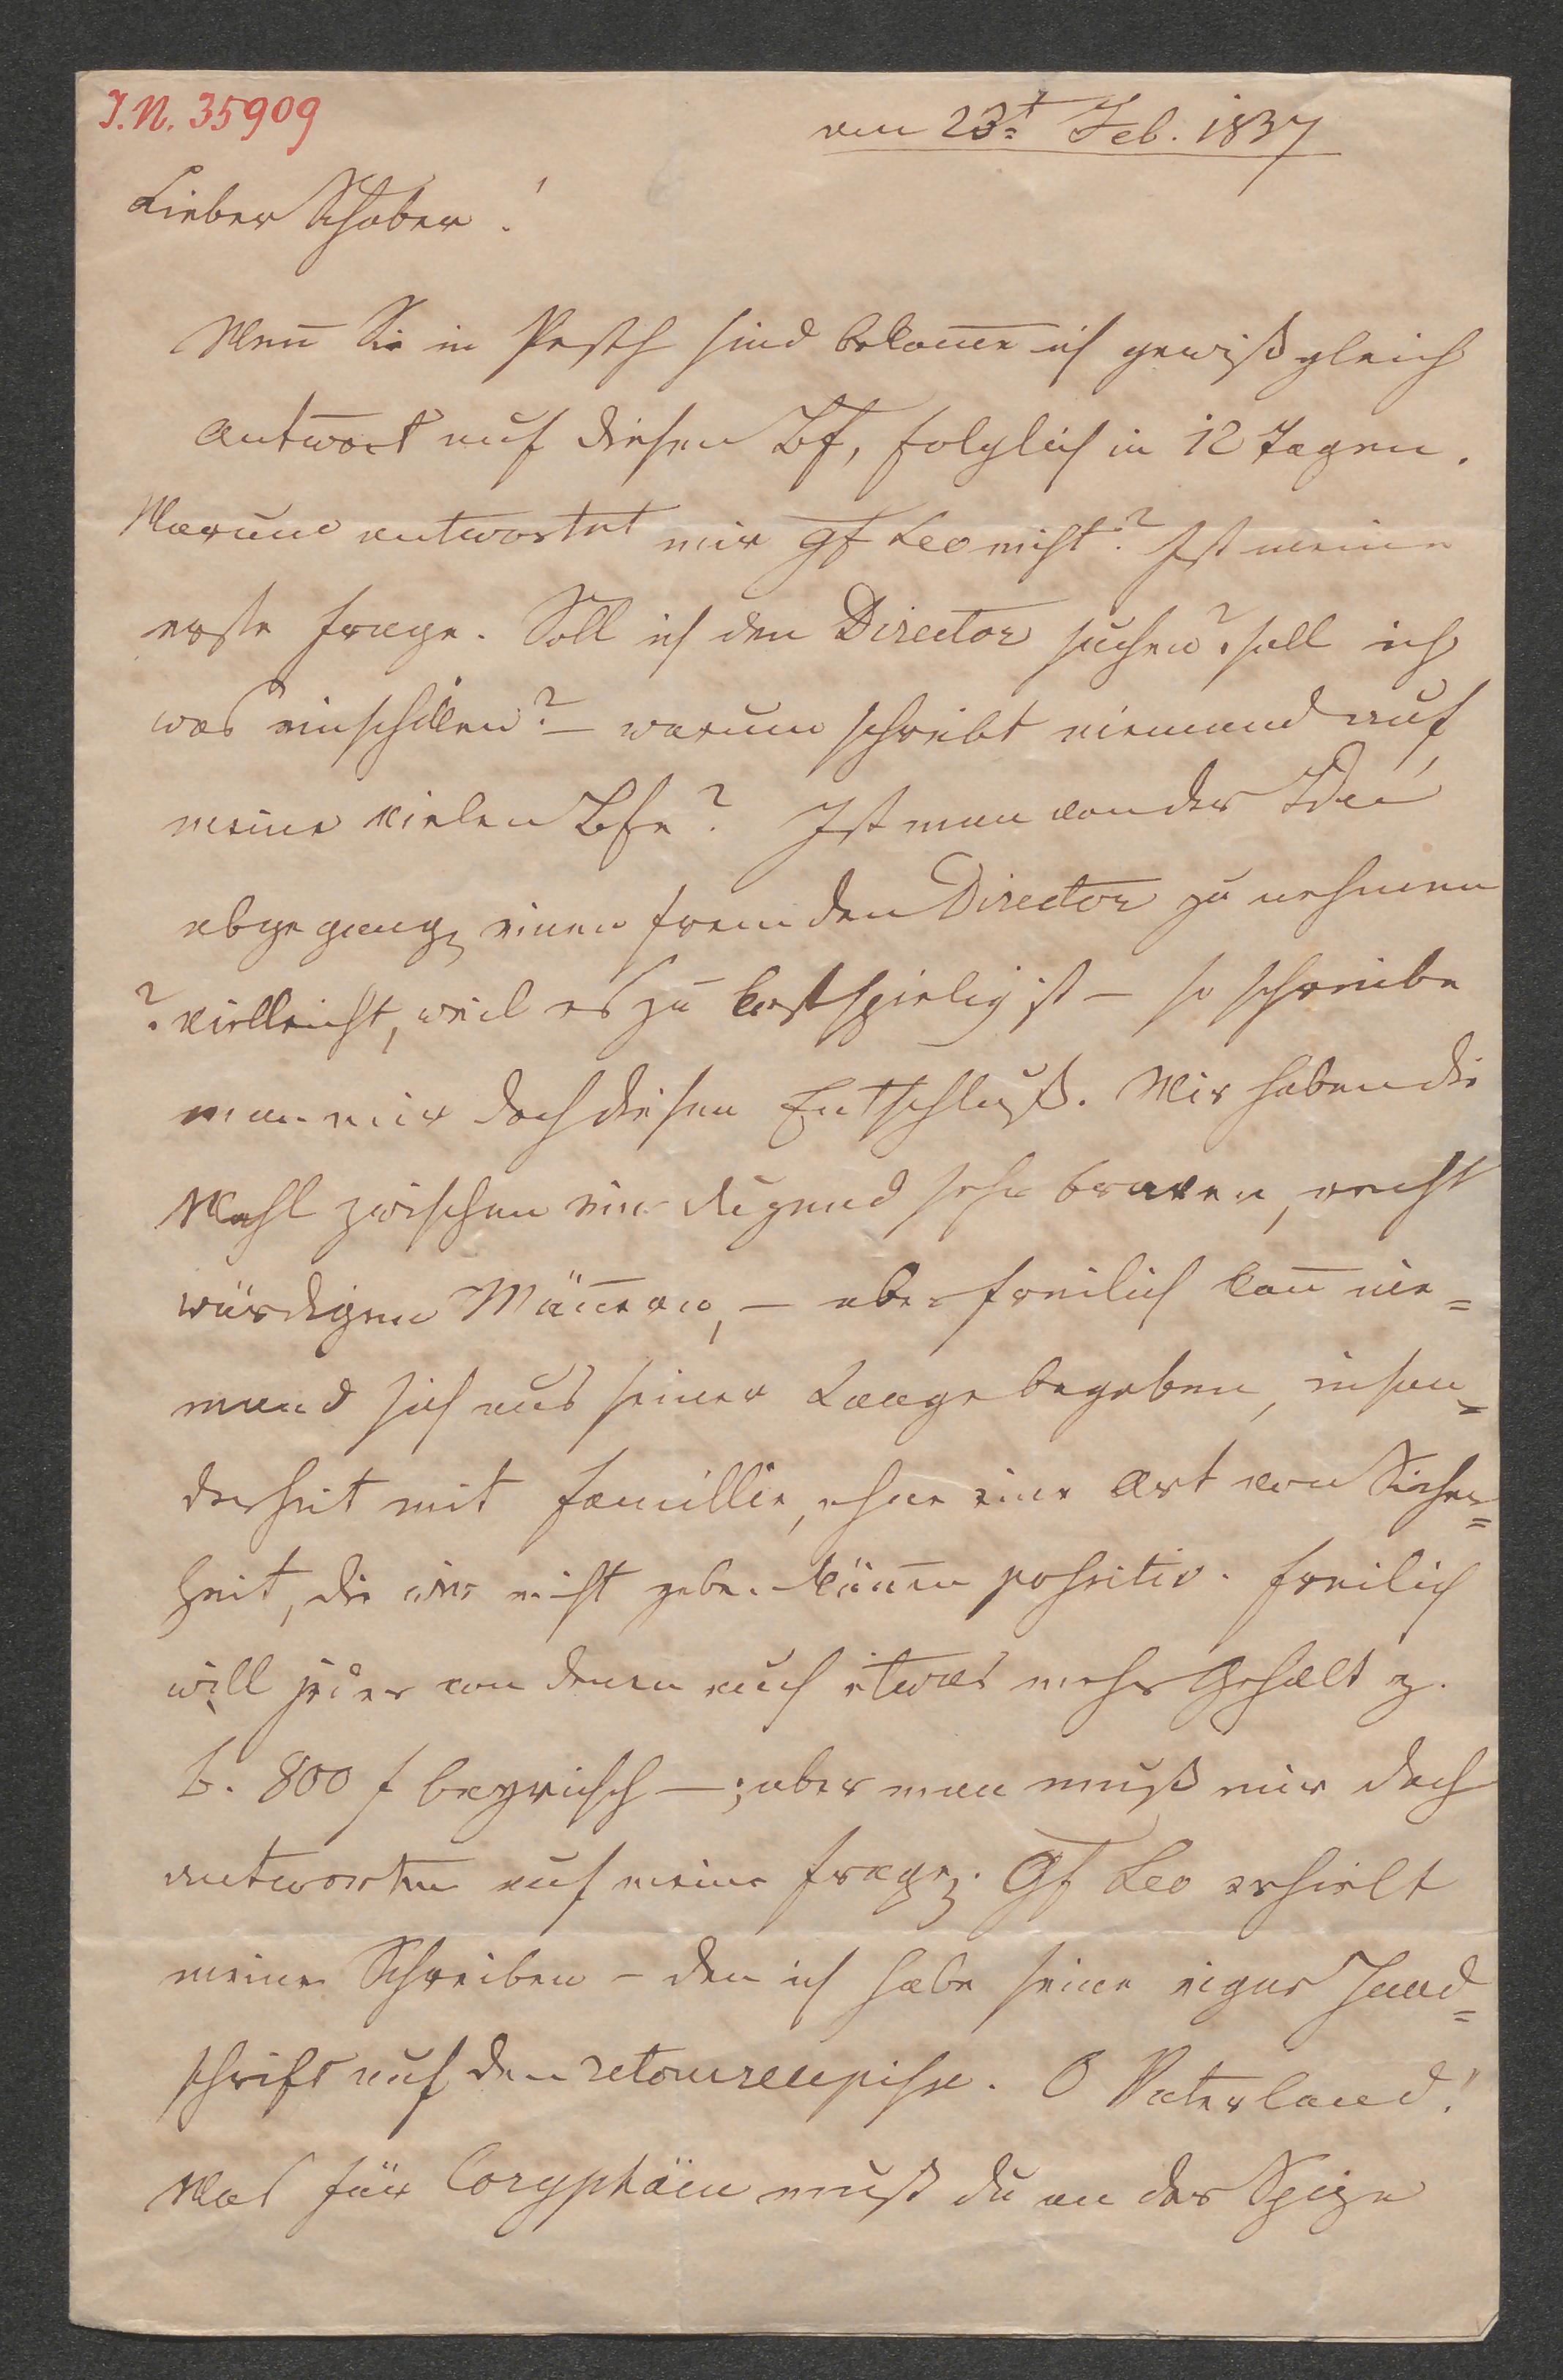 I.N. 35909
am 23t Feb. 1837
Lieber Schober!
Wen̄ Sie in Pesth sind bekom̄e ich gewiß gleich
Antwort auf diesen Bf, folglich in 12 Tagen.
Warum antwortet mir Gf Leo nicht? Ist meine
erste Frage. Soll ich den Director suchen? soll ich
was einschiken? – warum schreibt niemand auf
meine vielen Bfe? Ist man von der Idee
abgegang einen fremden Director zu nehmen
? vielleicht, weil es zu kostspielig ist – so schreibe
man mir doch diesen Entschluß. Wir haben die
Wahl zwischen ein dugend sehr braven, recht
würdigen Män̄ern, – aber freilich kan̄ nie=
mand sich aus seiner Laage begeben, inson=
derheit mit Famillie, ohne eine Art von Sicher=
heit, die wir nicht geben kön̄en positiv. Freilich
will jeder von denen auch etwas mehr Gehalt z.
b. 800 f bayrisch –; aber man muß mir doch
antworten auf meine Frage. Gf Leo erhielt
meine Schreiben – den ich habe seine eigne Hand=
schrift auf den retourrecepisse. O Vaterland!
Was für Coryphäen mußt du an der Spize